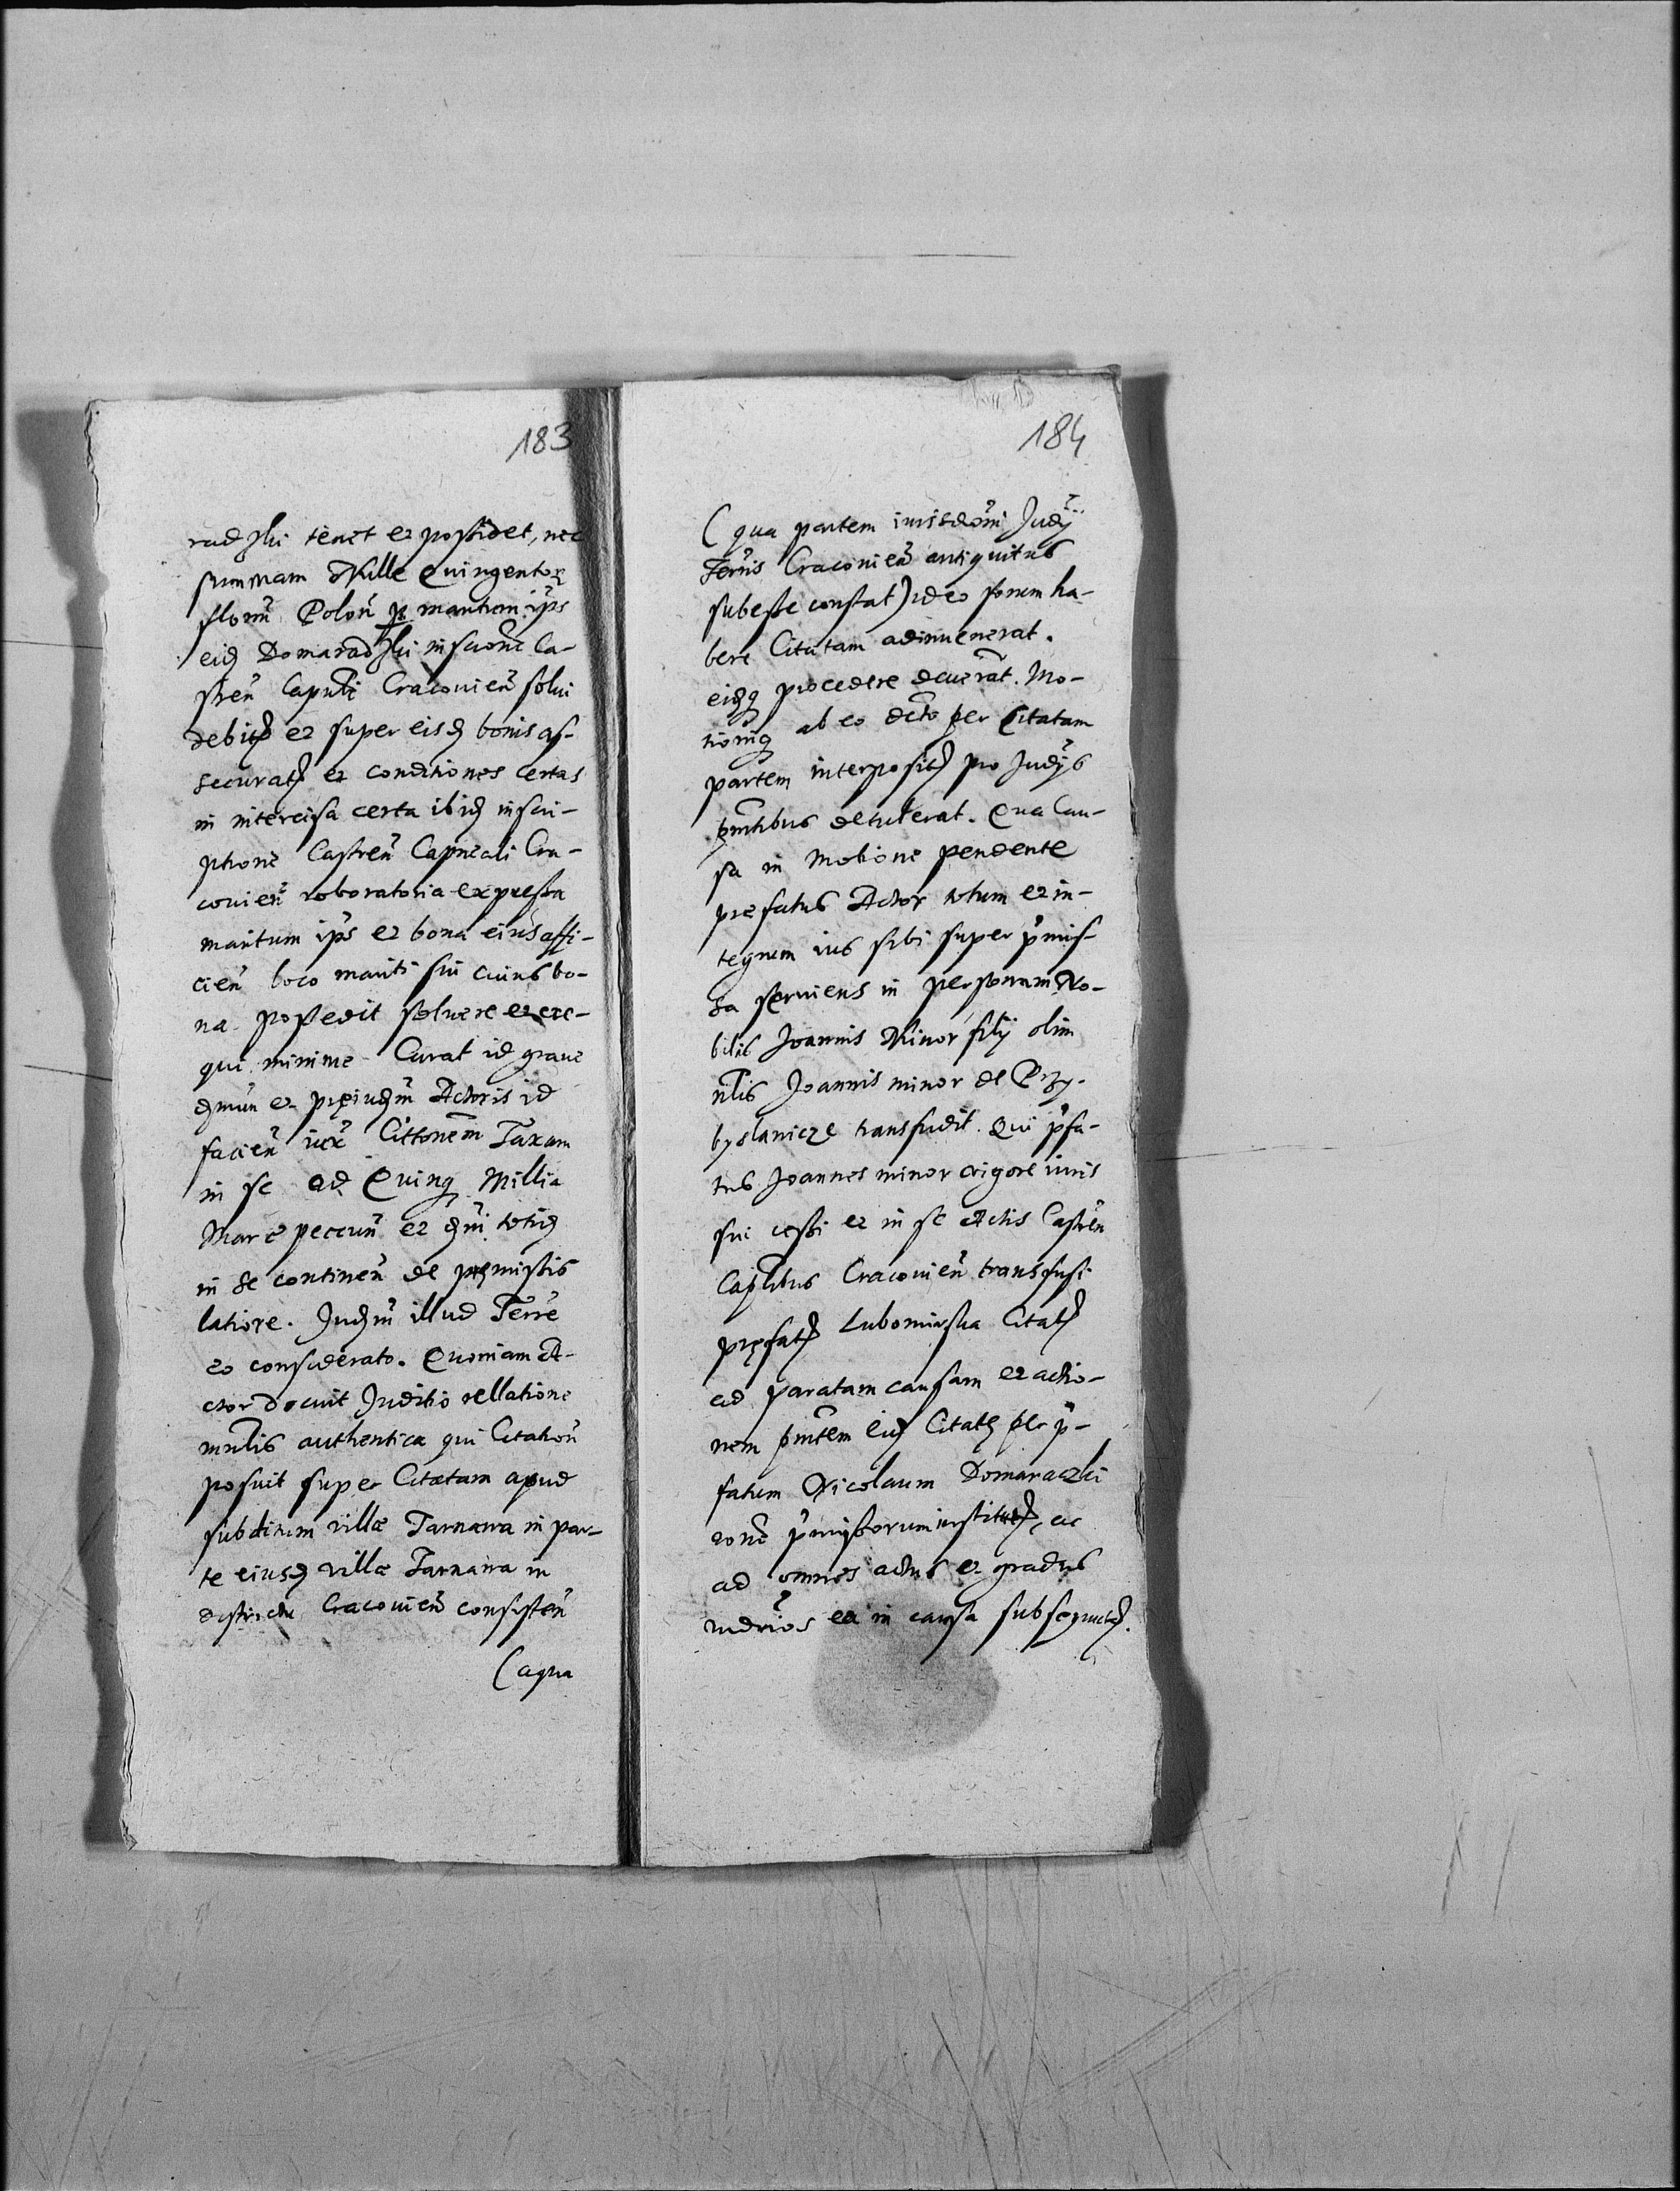 183
radzki tenet et possidet, nec
summam Mille Quingentor
floren̄ Polon̄ p maritum ip̄s
eid Domaradzki inscr̄one Ca-
stren̄ Capn̄li Cracouien̄ solui
debit et super eisd bonis as-
securat et conditiones certas
in intercisa certa ibid inscri-
ptione Castren̄ Capneali Cra-
couien̄ roboratoria expressa
maritum ip̄s et bona eius affi-
cien̄ loco mariti sui cuius bo-
na possedit soluere et exe-
qui minime Curat id graue
dmnūm et pręiudm̄ Actoris id
facien̄ iux̄ Citt̄onem Taxam
in se ad Quinq Millia
Marc̄ peccun̄ et dm̄ni totid
in se continen̄ de pręmissis
latiore. Judm̄ illud Terr̄e
eo considerato. Quoniam A-
ctor docuit Juditio rellatione
mn̄lis authentica qui Citation̄
posuit super Citatam apud
subditum villæ Tarnawa in par-
te eiusd villæ Tarnawa in
districtu Cracouien̄ consisten̄
(aqua
184
(qua partem iurisdōni Judȳ
Terr̄is Cracouien̄ antiquitus
subesse constat) ideo forum ha-
bere Citatam adinuenerat.
eidq procedere decr̄erat. Mo-
tionīq ab eo dcto per Citatam
partem interposit pro Judȳs
pn̄tibus detulerat. Qua Cau-
sa in Motione pendente
prefatus Actor totum et in-
tegrum ius sibi super p̄mis-
sa seruiens in personam No-
bilis Joannis Minor filij olim
nt̄lis Joannis minor de Przy-
byslawicze transfudit. Qui p̄fa-
tus Joannes minor vigore iuris
sui cessi et in se Actis Castren̄
Capl̄ibus Cracouien̄ transfusi
pręfat Lubomirska Citat
ad paratam causam et actio-
nem pn̄tem eid Citatę per p̄-
fatum Nicolaum Domaraczki
rone p̄missorum institut, ac
ad omnes actus et gradus
iudrios ea in causa subsequut.